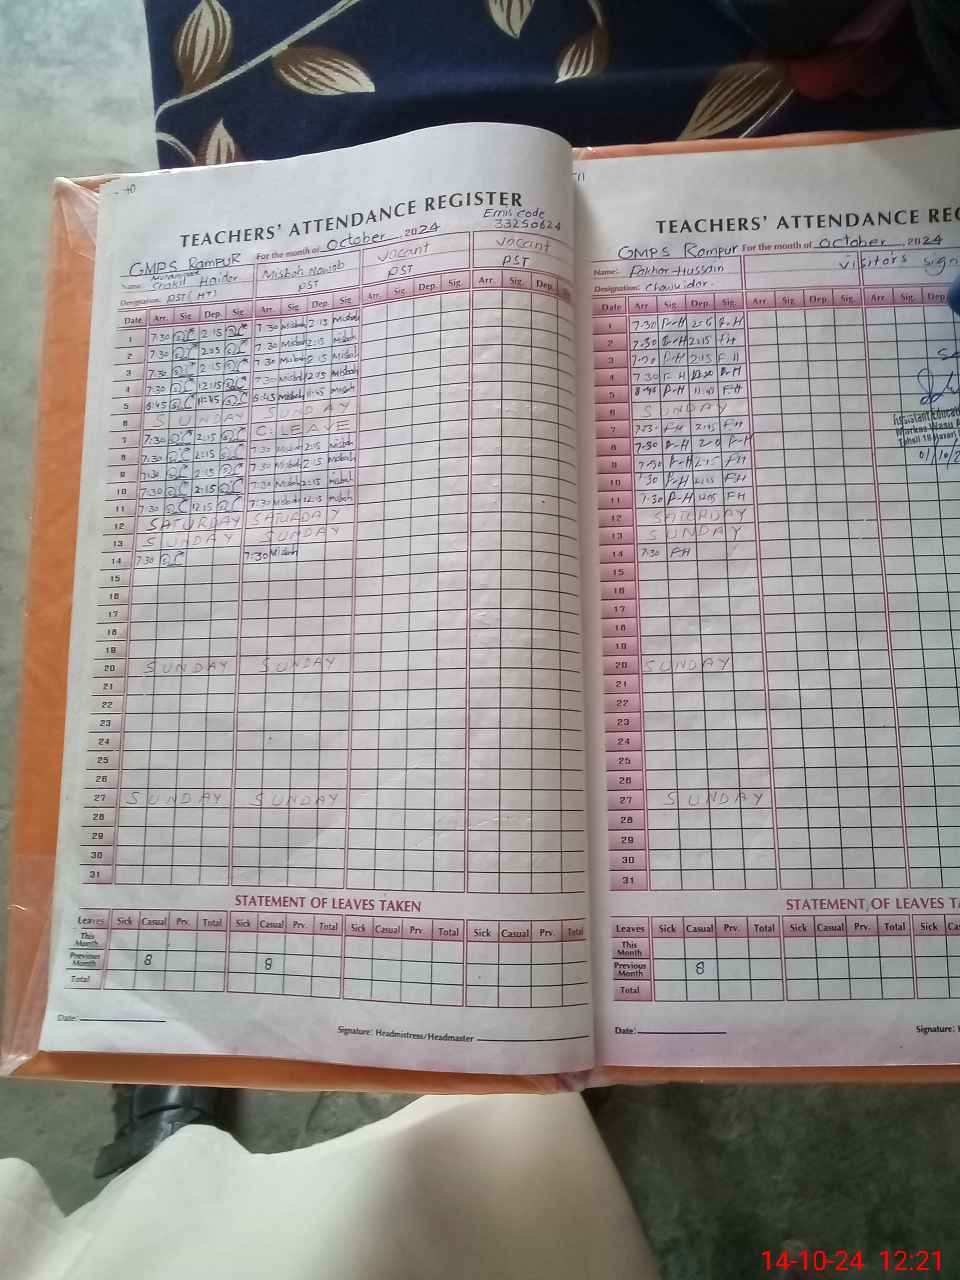 TEACHERS' ATTENDANCE REGISTER
Emis code
33250624
GMPS Rampur For the month of October, 2024
Name: Muhammad Shakil Haider Misbah Nawab vacant vacant
Designation: PST (HT) PST PST PST
Date Arr. Sig Dep. Sig Arr. Sig. Dep. Sig. Arr. Sig. Dep. Sig. Arr. Sig. Dep.
1 7:30 2:15 7:30 Misbah 2:15 Misbah
2 7:30 2:15 7:30 Misbah 2:15 Misbah
3 7:30 2:15 7:30 Misbah 2:15 Misbah
4 7:30 12:15 7:30 Misbah 12:15 Misbah
5 8:45 11:45 8:45 Misbah 11:45 Misbah
6 SUNDAY SUNDAY
7 7:30 2:15 C. LEAVE
8 7:30 2:15 7:30 Misbah 2:15 Misbah
9 7:30 2:15 7:30 Misbah 2:15 Misbah
10 7:30 2:15 7:30 Misbah 2:15 Misbah
11 7:30 12:15 7:30 Misbah 12:15 Misbah
12 SATURDAY SATURDAY
13 SUNDAY SUNDAY
14 7:30 7:30 Misbah
15
16
17
18
19
20 SUNDAY SUNDAY
21
22
23
24
25
26
27 SUNDAY SUNDAY
28
29
30
31
STATEMENT OF LEAVES TAKEN
Leaves Sick Casual Prv. Total Sick Casual Prv. Total Sick Casual Prv. Total Sick Casual Prv. Total
This Month
Previous Month 8 8
Total
Date:
Signature: Headmistress/Headmaster
TEACHERS' ATTENDANCE REG
GMPS Rampur For the month of October, 2024
Name: Fakhar Hussain visitors sign
Designation: Chowkidar.
Date Arr. Sig. Dep. Sig. Arr. Sig. Dep. Sig. Arr. Sig. Dep.
1 7:30 F-H F-H
2 7:30 F-H 2:15 FH
3 7:30 F-H 2:15 F H
4 7:30 F H F-H
5 8:45 F-H 11:45 F-H
6 SUNDAY
7 F-H 2:15 F-H
8 7:30 F-H F-H
9 7:30 F-H 2:15 FH
10 7:30 F-H 2:15 FH
11 7:30 F-H 12:15 FH
12 SATURDAY
13 SUNDAY
14 7:30 FH
15
16
17
18
19
20 SUNDAY
21
22
23
24
25
26
27 SUNDAY
28
29
30
31
Assistant Educati
Markaz
01/10/2
STATEMENT OF LEAVES TA
Leaves Sick Casual Prv. Total Sick Casual Prv. Total Sick
This Month
Previous Month 8
Total
Date:
Signature:
14-10-24 12:21